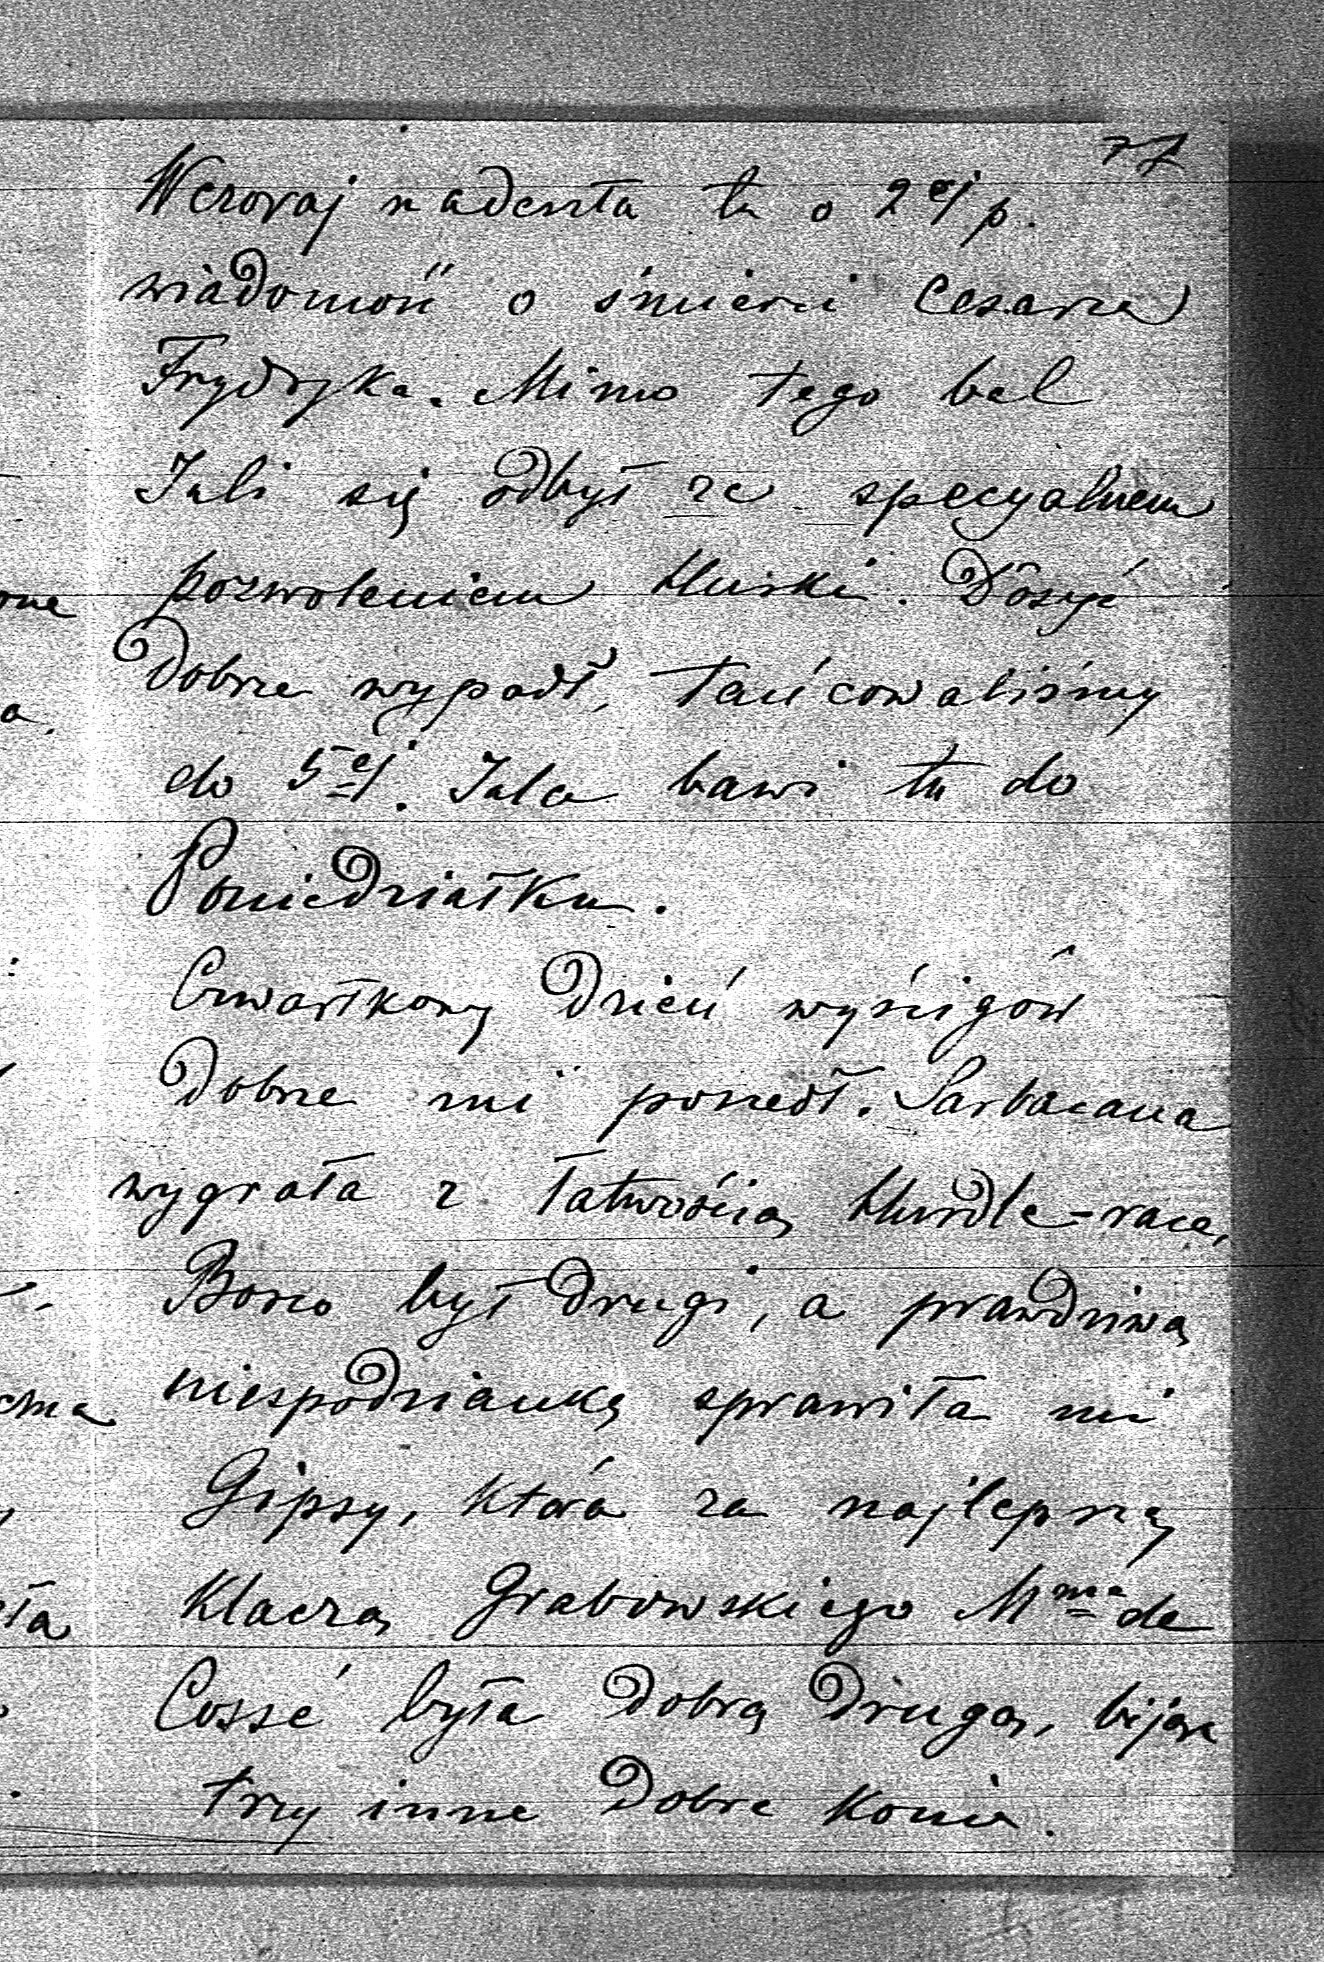 77
Wczoraj nadeszła tu o 2ej p.
wiadomość o śmierci Cesarza
Fryderyka. Mimo tego bal
Juli się odbył ze specyalnem
pozwoleniem Hurki. Dosyć
dobrze wypadł, tańcowaliśmy
do 5ej. Jula bawi tu do
Poniedziałku.
Czwartkowy dzień wyścigów
dobrze mi poszedł. Sarbacana
wygrała z łatwością Hurdle-race,
był drugi, a prawdziwą
niespodziankę sprawiła mi
Gipsy, która za najlepszą
klaczą Grabowskiego Mme de
Cossé była dobrą drugą, bijąc
trzy inne dobre konie.